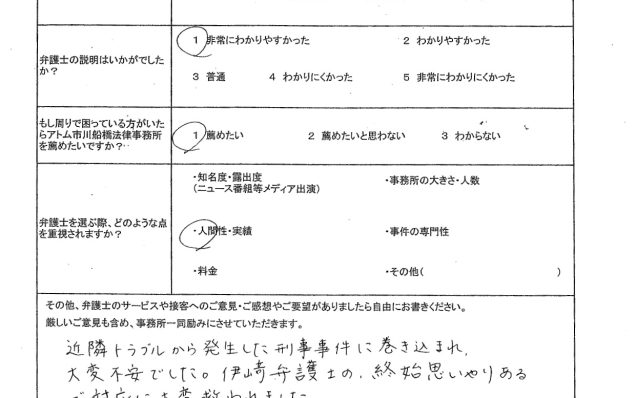 弁護士の説明はいかがでした
か?
1 非常にわかりやすかった 2 わかりやすかった
3 普通 4 わかりにくかった 5 非常にわかりにくかった
もし周りで困っている方がいた
らアトム市川船橋法律事務所
を薦めたいですか?
1 薦めたい 2 薦めたいと思わない 3 わからない
弁護士を選ぶ際、どのような点
を重視されますか?
・知名度・露出度
(ニュース番組等メディア出演)
・事務所の大きさ・人数
・人間性・実績 ・事件の専門性
・料金 ・その他( )
その他、弁護士のサービスや接客へのご意見・ご感想やご要望がありましたら自由にお書きください。
厳しいご意見も含め、事務所一同励みにさせていただきます。
近隣トラブルから発生した刑事事件に巻き込まれ、
大変不安でした。伊﨑弁護士の、終始思いやりある
ご対応に大変救われました